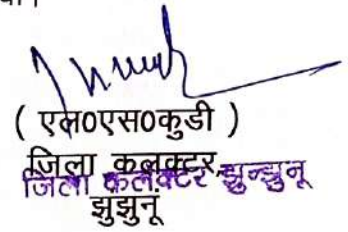 ( एल0एस0कुडी )
जिला कलक्टर,
जिला कलेक्टर झुन्झुनू
झुझुनूं